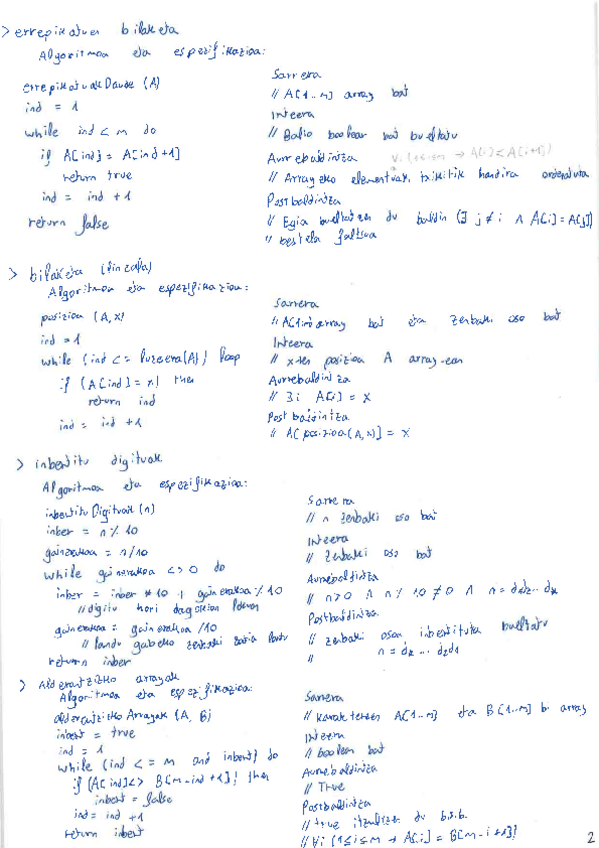 > errepikatuen bilaketa
Algoritmoa eta espezifikazioa:
errepikatuakDaude (A)
ind = 1
while ind < m do
if A[ind] = A[ind+1]
return true
ind = ind + 1
return false
Sarrera
// A[1..m] array bat
Irteera
// Balio boolear bat bueltatu
Aurrebaldintza
∀i (1≤i≤m → A[i] ≤ A[i+1])
// Arrayeko elementuak txikitik handira ordenatuta
Postbaldintza
// Egia bueltatzen du baldin (∃ j ≠ i ∧ A[i] = A[j])
// bestela faltsua
> bilaketa (lineala)
Algoritmoa eta espezifikazioa:
posizioa (A, x)
ind = 1
while (ind <= luzeera(A)) loop
if (A[ind] = x) then
return ind
ind = ind + 1
Sarrera
// A[1..m] array bat eta zenbaki oso bat
Irteera
// x-ren posizioa A array-ean
Aurrebaldintza
// ∃i A[i] = x
Postbaldintza
// A[posizioa(A,x)] = x
> inbertitu digituak
Algoritmoa eta espezifikazioa:
inbertituDigituak (n)
inber = n % 10
gainerakoa = n/10
while gainerakoa <> 0 do
inber = inber * 10 + gainerakoa % 10
// digitu hori dagokion lekuan
gainerakoa = gainerakoa / 10
// landu gabeko zenbaki zatia hartu
return inber
Sarrera
// n zenbaki oso bat
Irteera
// Zenbaki oso bat
Aurrebaldintza
// n>0 ∧ n % 10 ≠ 0 ∧ n = d1d2...dk
Postbaldintza
// zenbaki osoa inbertituta bueltatu
// n = dk ... d2d1
> Alderantzizko arrayak
Algoritmoa eta espezifikazioa:
alderantzizkoArrayak (A, B)
inbert = true
ind = 1
while (ind <= m and inbert) do
if (A[ind] <> B[m-ind+1]) then
inbert = false
ind = ind + 1
return inbert
Sarrera
// karaktereen A[1..m] eta B[1..m] bi array
Irteera
// boolear bat
Aurrebaldintza
// True
Postbaldintza
// true itzultzen du b.s.b.
// ∀i (1≤i≤m → A[i] = B[m-i+1])
2